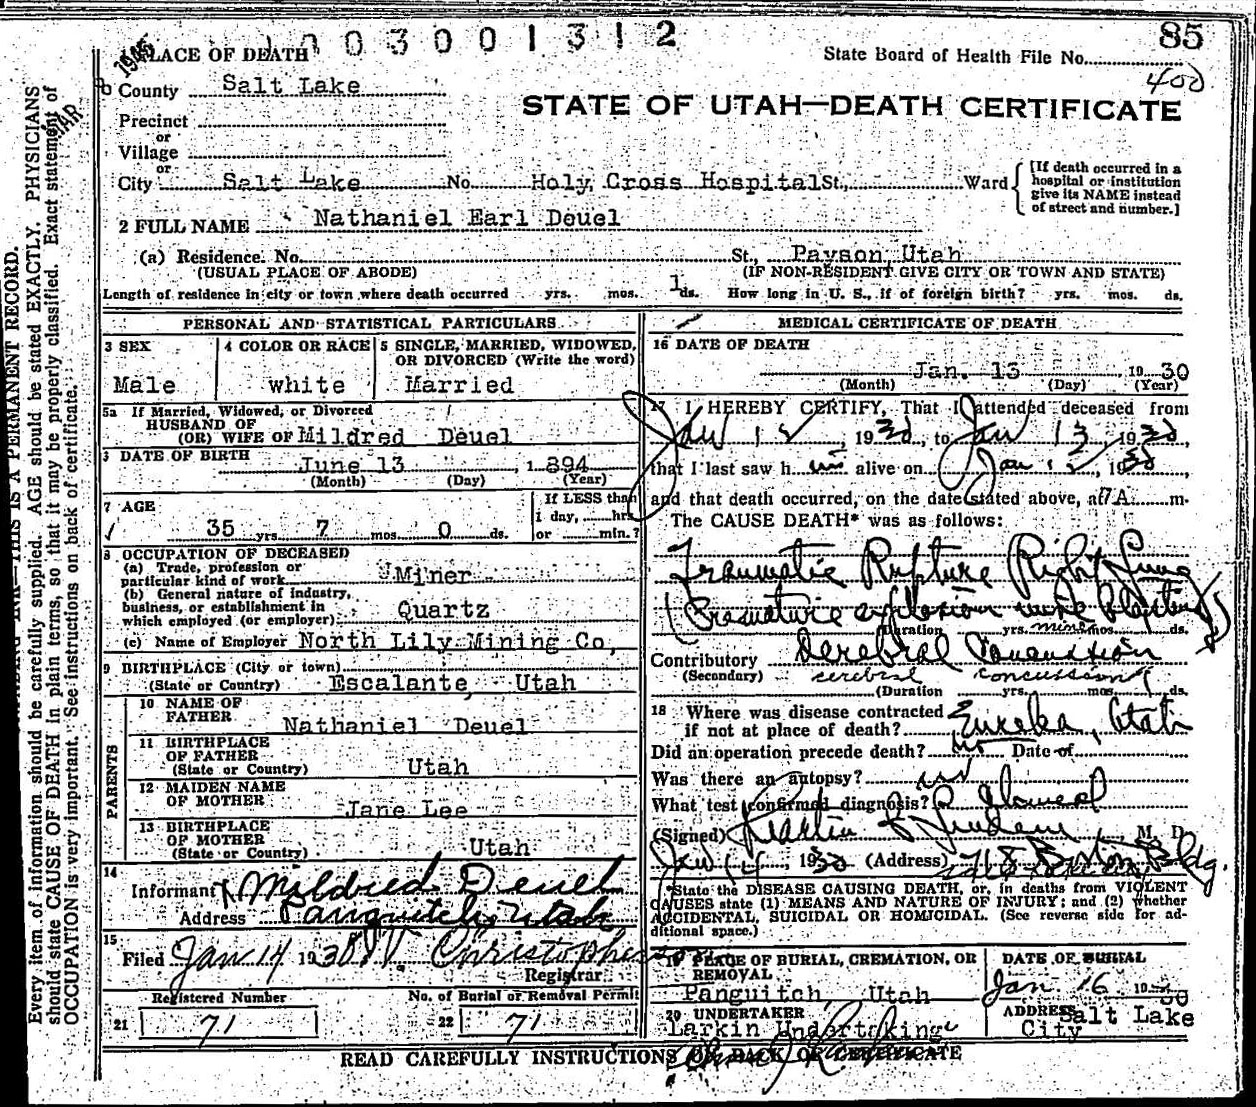 1003001312
85
1945
MAR
PLACE OF DEATH
State Board of Health File No.
400
County Salt Lake
STATE OF UTAH—DEATH CERTIFICATE
Precinct
or
Village
or
City Salt Lake No. Holy Cross Hospital St., Ward
[If death occurred in a hospital or institution give its NAME instead of street and number.]
2 FULL NAME Nathaniel Earl Deuel
(a) Residence. No. St., Payson, Utah
(USUAL PLACE OF ABODE) (IF NON-RESIDENT GIVE CITY OR TOWN AND STATE)
Length of residence in city or town where death occurred yrs. mos. 1 ds. How long in U. S., if of foreign birth? yrs. mos. ds.
PERSONAL AND STATISTICAL PARTICULARS
3 SEX
Male
4 COLOR OR RACE
white
5 SINGLE, MARRIED, WIDOWED, OR DIVORCED (Write the word)
Married
5a If Married, Widowed, or Divorced
HUSBAND OF
(OR) WIFE OF Mildred Deuel
6 DATE OF BIRTH
June 13, 1894
(Month) (Day) (Year)
7 AGE
35 yrs. 7 mos. 0 ds.
If LESS than
1 day, hrs.
or min.?
8 OCCUPATION OF DECEASED
(a) Trade, profession or
particular kind of work Miner
(b) General nature of industry,
business, or establishment in
which employed (or employer) Quartz
(c) Name of Employer North Lily Mining Co,
9 BIRTHPLACE (City or town)
(State or Country) Escalante Utah
PARENTS
10 NAME OF
FATHER Nathaniel Deuel
11 BIRTHPLACE
OF FATHER
(State or Country) Utah
12 MAIDEN NAME
OF MOTHER
Jane Lee
13 BIRTHPLACE
OF MOTHER
(State or Country) Utah
14
Informant Mildred Deuel
Address Panguitch, Utah
15
Filed Jan 14 1930 Christopherson
Registrar
Registered Number No. of Burial or Removal Permit
21 71 22 71
MEDICAL CERTIFICATE OF DEATH
16 DATE OF DEATH
Jan. 13 1930
(Month) (Day) (Year)
17 I HEREBY CERTIFY, That I attended deceased from
Jan 12, 1930, to Jan 13, 1930,
that I last saw him alive on Jan 12, 1930
and that death occurred, on the date stated above, at 7A m.
The CAUSE DEATH* was as follows:
Traumatic Rupture Right Lung
(Premature explosion while blasting)
Duration yrs. mos. ds.
mine
Contributory Cerebral Concussion
(Secondary) cerebral concussion
(Duration yrs. mos. 1 ds.
18 Where was disease contracted
if not at place of death? Eureka, Utah
Did an operation precede death? no Date of
Was there an autopsy?
What test confirmed diagnosis?
(Signed) M. D.
Jan 14, 1930 (Address) 718 Boston Bldg.
*State the DISEASE CAUSING DEATH, or, in deaths from VIOLENT
CAUSES state (1) MEANS AND NATURE OF INJURY; and (2) whether
ACCIDENTAL, SUICIDAL OR HOMICIDAL. (See reverse side for ad-
ditional space.)
19 PLACE OF BURIAL, CREMATION, OR
REMOVAL
Panguitch, Utah
DATE OF BURIAL
Jan 16 1930
20 UNDERTAKER
Larkin Undertaking
ADDRESS Salt Lake
City
READ CAREFULLY INSTRUCTIONS ON BACK OF CERTIFICATE
THIS IS A PERMANENT RECORD.
Every item of information should be carefully supplied. AGE should be stated EXACTLY. PHYSICIANS
should state CAUSE OF DEATH in plain terms, so that it may be properly classified. Exact statement of
OCCUPATION is very important. See instructions on back of certificate.